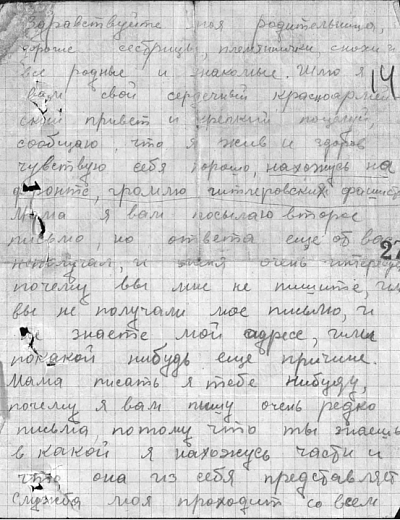 Здравствуйте моя родительница,
дорогие сестрицы, племянички снохи и
все родные и знакомые. Шлю я
14
вам свой сердечный красноармей-
ский привет и крепкий поцелуй,
сообщаю, что я жив и здоров
чувствую себя хорошо, нахожусь на
фронте, громлю гитлеровских фашист
Мама я вам посылаю второе
письмо, но ответа еще от вас
27
неполучал, и меня очень интересует
почему вы мне не пишите, или
вы не получали мое письмо, и
не знаете мой адрес, или
покакой нибудь еще причине.
Мама писать я тебе нибуду,
почему я вам пишу очень редко
письма, потому что ты знаешь
в какой я нахожусь части и
что она из себя представляет
Служба моя проходит со всем